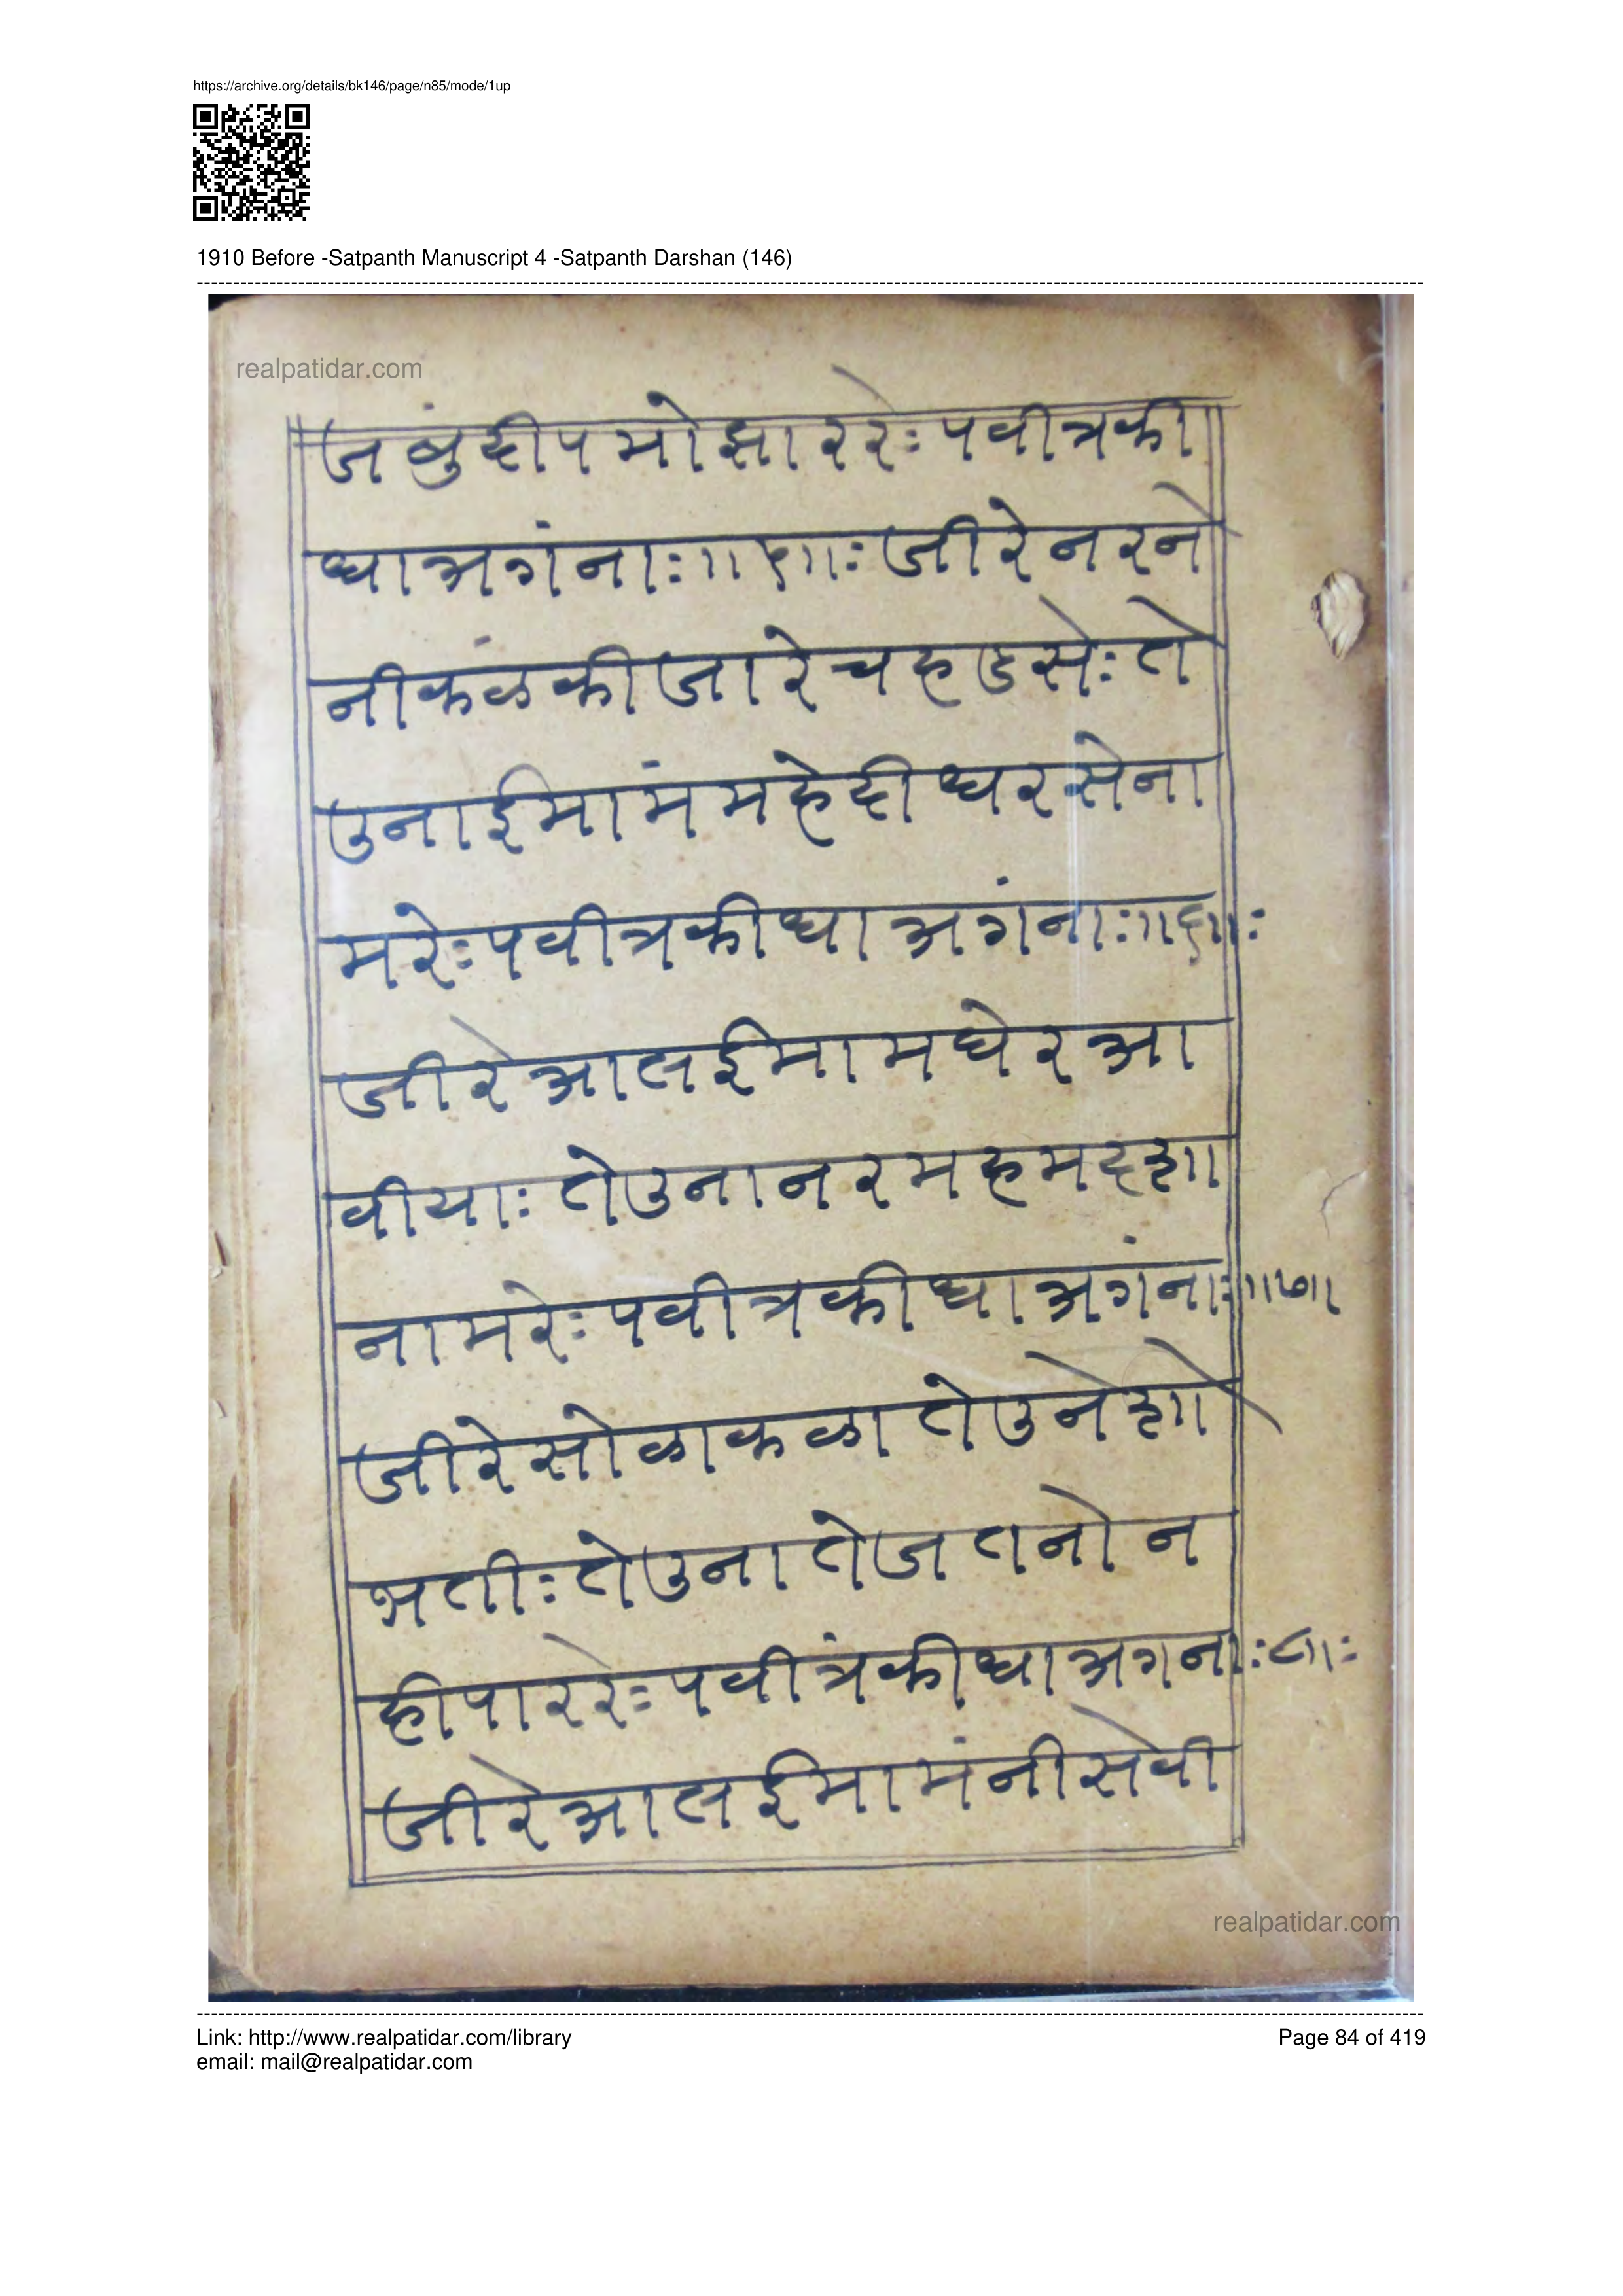 https://archive.org/details/bk146/page/n85/mode/1up
1910 Before -Satpanth Manuscript 4 -Satpanth Darshan (146)
realpatidar.com
जंबुदीपमोझाररेः पवीत्रकी
धाअगंनाः ॥५॥ः जीरेनरने
नीकंळकीजारेचहडसेः ते
उनाईमामंमहेदीधरसेना
मरेः पवीत्रकीधाअगंनाः ॥६॥ः
जीरेआलईमामघेरआ
वीयाः तेउनानरमहमदशा
नामरेः पवीत्रकीधाअगंनाः ॥७॥
जीरेसोळाकळातेउनेशो
भतीः तेउनातेजतनोन
हीपाररेः पवीत्रंकीधाअगनाः ८॥ः
जीरेआलईमामंनीसेवी
realpatidar.com
Link: http://www.realpatidar.com/library
Page 84 of 419
email: mail@realpatidar.com